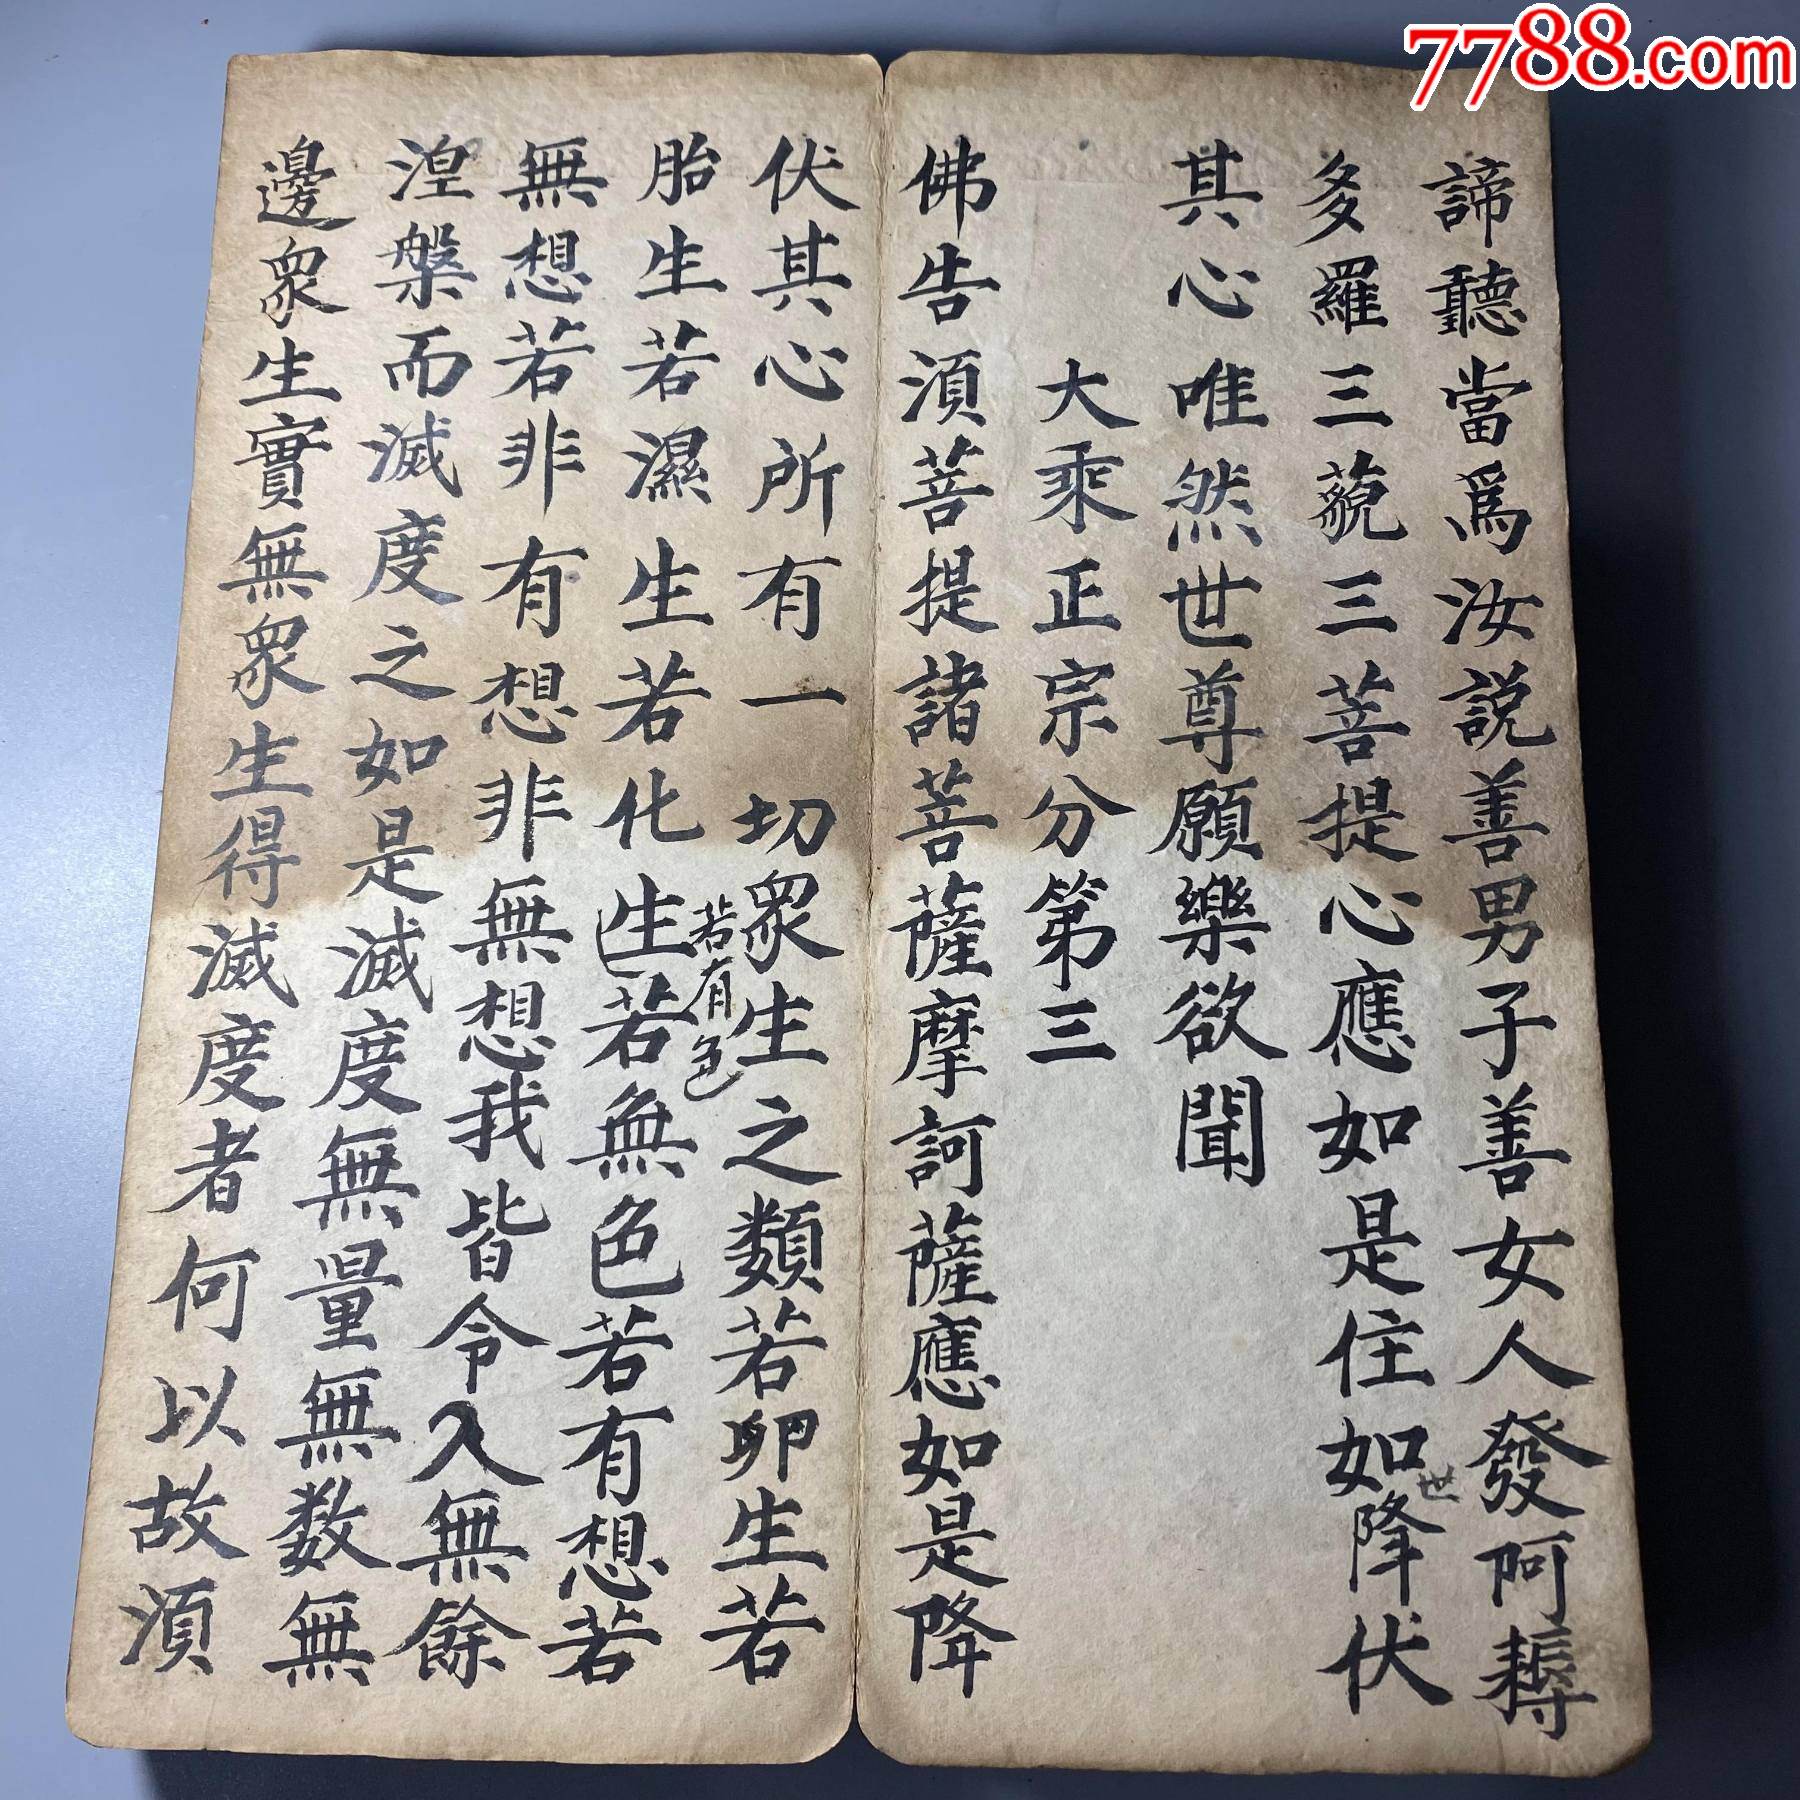 7788.com
諦聽當爲汝説善男子善女人發阿耨
多羅三藐三菩提心應如是住如世降伏
其心唯然世尊願樂欲聞
大乘正宗分第三
佛告湏菩提諸菩薩摩訶薩應如是降
伏其心所有一切衆生之類若卵生若
胎生若濕生若化生若有色若無色若有想若
無想若非有想非無想我皆令入無餘
涅槃而滅度之如是滅度無量無数無
邊衆生實無衆生得滅度者何以故湏